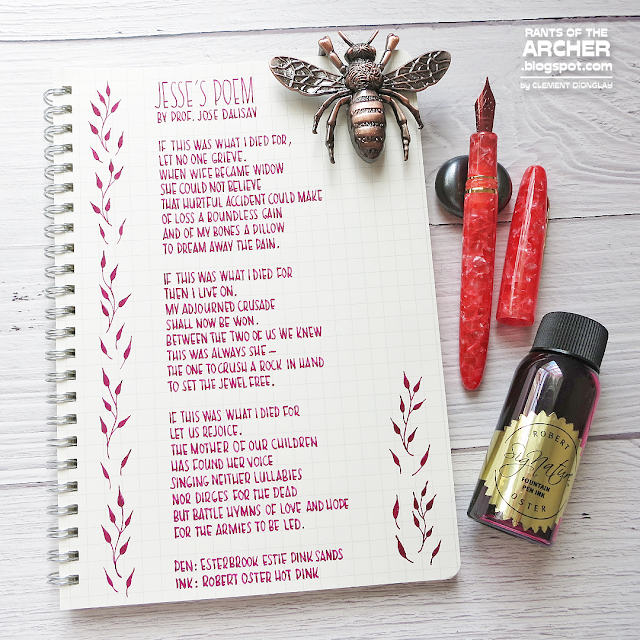 RANTS OF THE
ARCHER
.blogspot.com
by CLEMENT DIONGLAY
JESSE'S POEM
BY PROF. JOSE DALISAY
IF THIS WAS WHAT I DIED FOR,
LET NO ONE GRIEVE.
WHEN WIFE BECAME WIDOW
SHE COULD NOT BELIEVE
THAT HURTFUL ACCIDENT COULD MAKE
OF LOSS A BOUNDLESS GAIN
AND OF MY BONES A PILLOW
TO DREAM AWAY THE PAIN.
IF THIS WAS WHAT I DIED FOR
THEN I LIVE ON.
MY ADJOURNED CRUSADE
SHALL NOW BE WON.
BETWEEN THE TWO OF US WE KNEW
THIS WAS ALWAYS SHE—
THE ONE TO CRUSH A ROCK IN HAND
TO SET THE JEWEL FREE.
IF THIS WAS WHAT I DIED FOR
LET US REJOICE.
THE MOTHER OF OUR CHILDREN
HAS FOUND HER VOICE
SINGING NEITHER LULLABIES
NOR DIRGES FOR THE DEAD
BUT BATTLE HYMNS OF LOVE AND HOPE
FOR THE ARMIES TO BE LED.
PEN: ESTERBROOK ESTIE PINK SANDS
INK: ROBERT OSTER HOT PINK
ROBERT
Signature
FOUNTAIN
PEN INK
OSTER